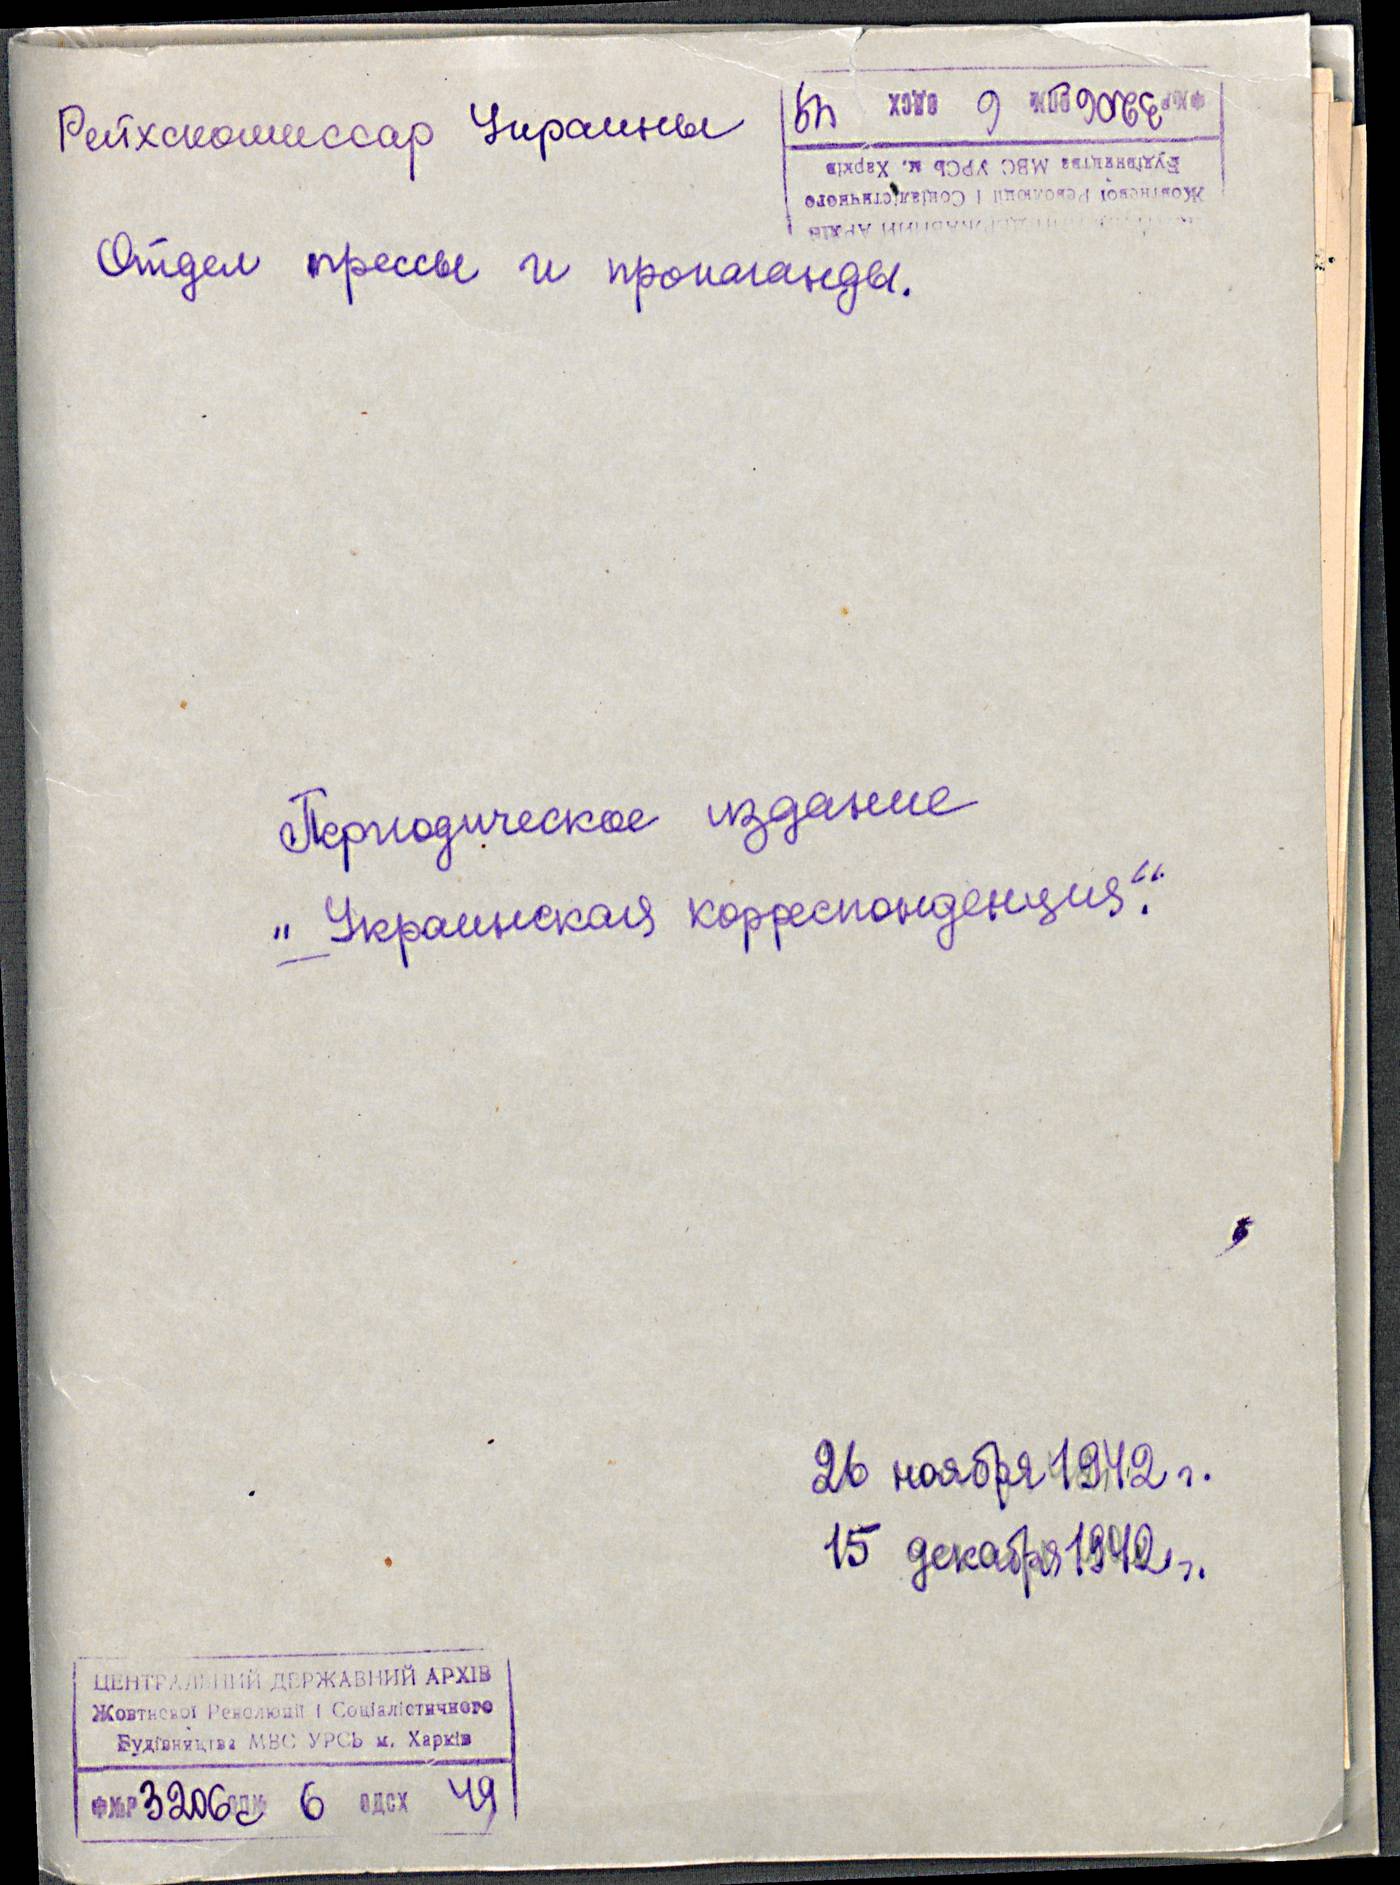 Рейхскомиссар Украины
Отдел прессы и пропаганды.
ФЖР 3206 ОПЖ 6 ОДСХ 49
Будівництва МВС УРСЬ м. Харків
Жовтневої Революції і Соціалістичного
ДЕРЖАВНИЙ АРХІВ
Периодическое издание
„Украинская корреспонденция".
26 ноября 1942 г.
15 декабря 1942 г.
ЦЕНТРАЛЬНИЙ ДЕРЖАВНИЙ АРХІВ
Жовтневої Революції і Соціалістичного
Будівництва МВС УРСЬ м. Харків
ФЖР 3206 ОПЖ 6 ОДСХ 49